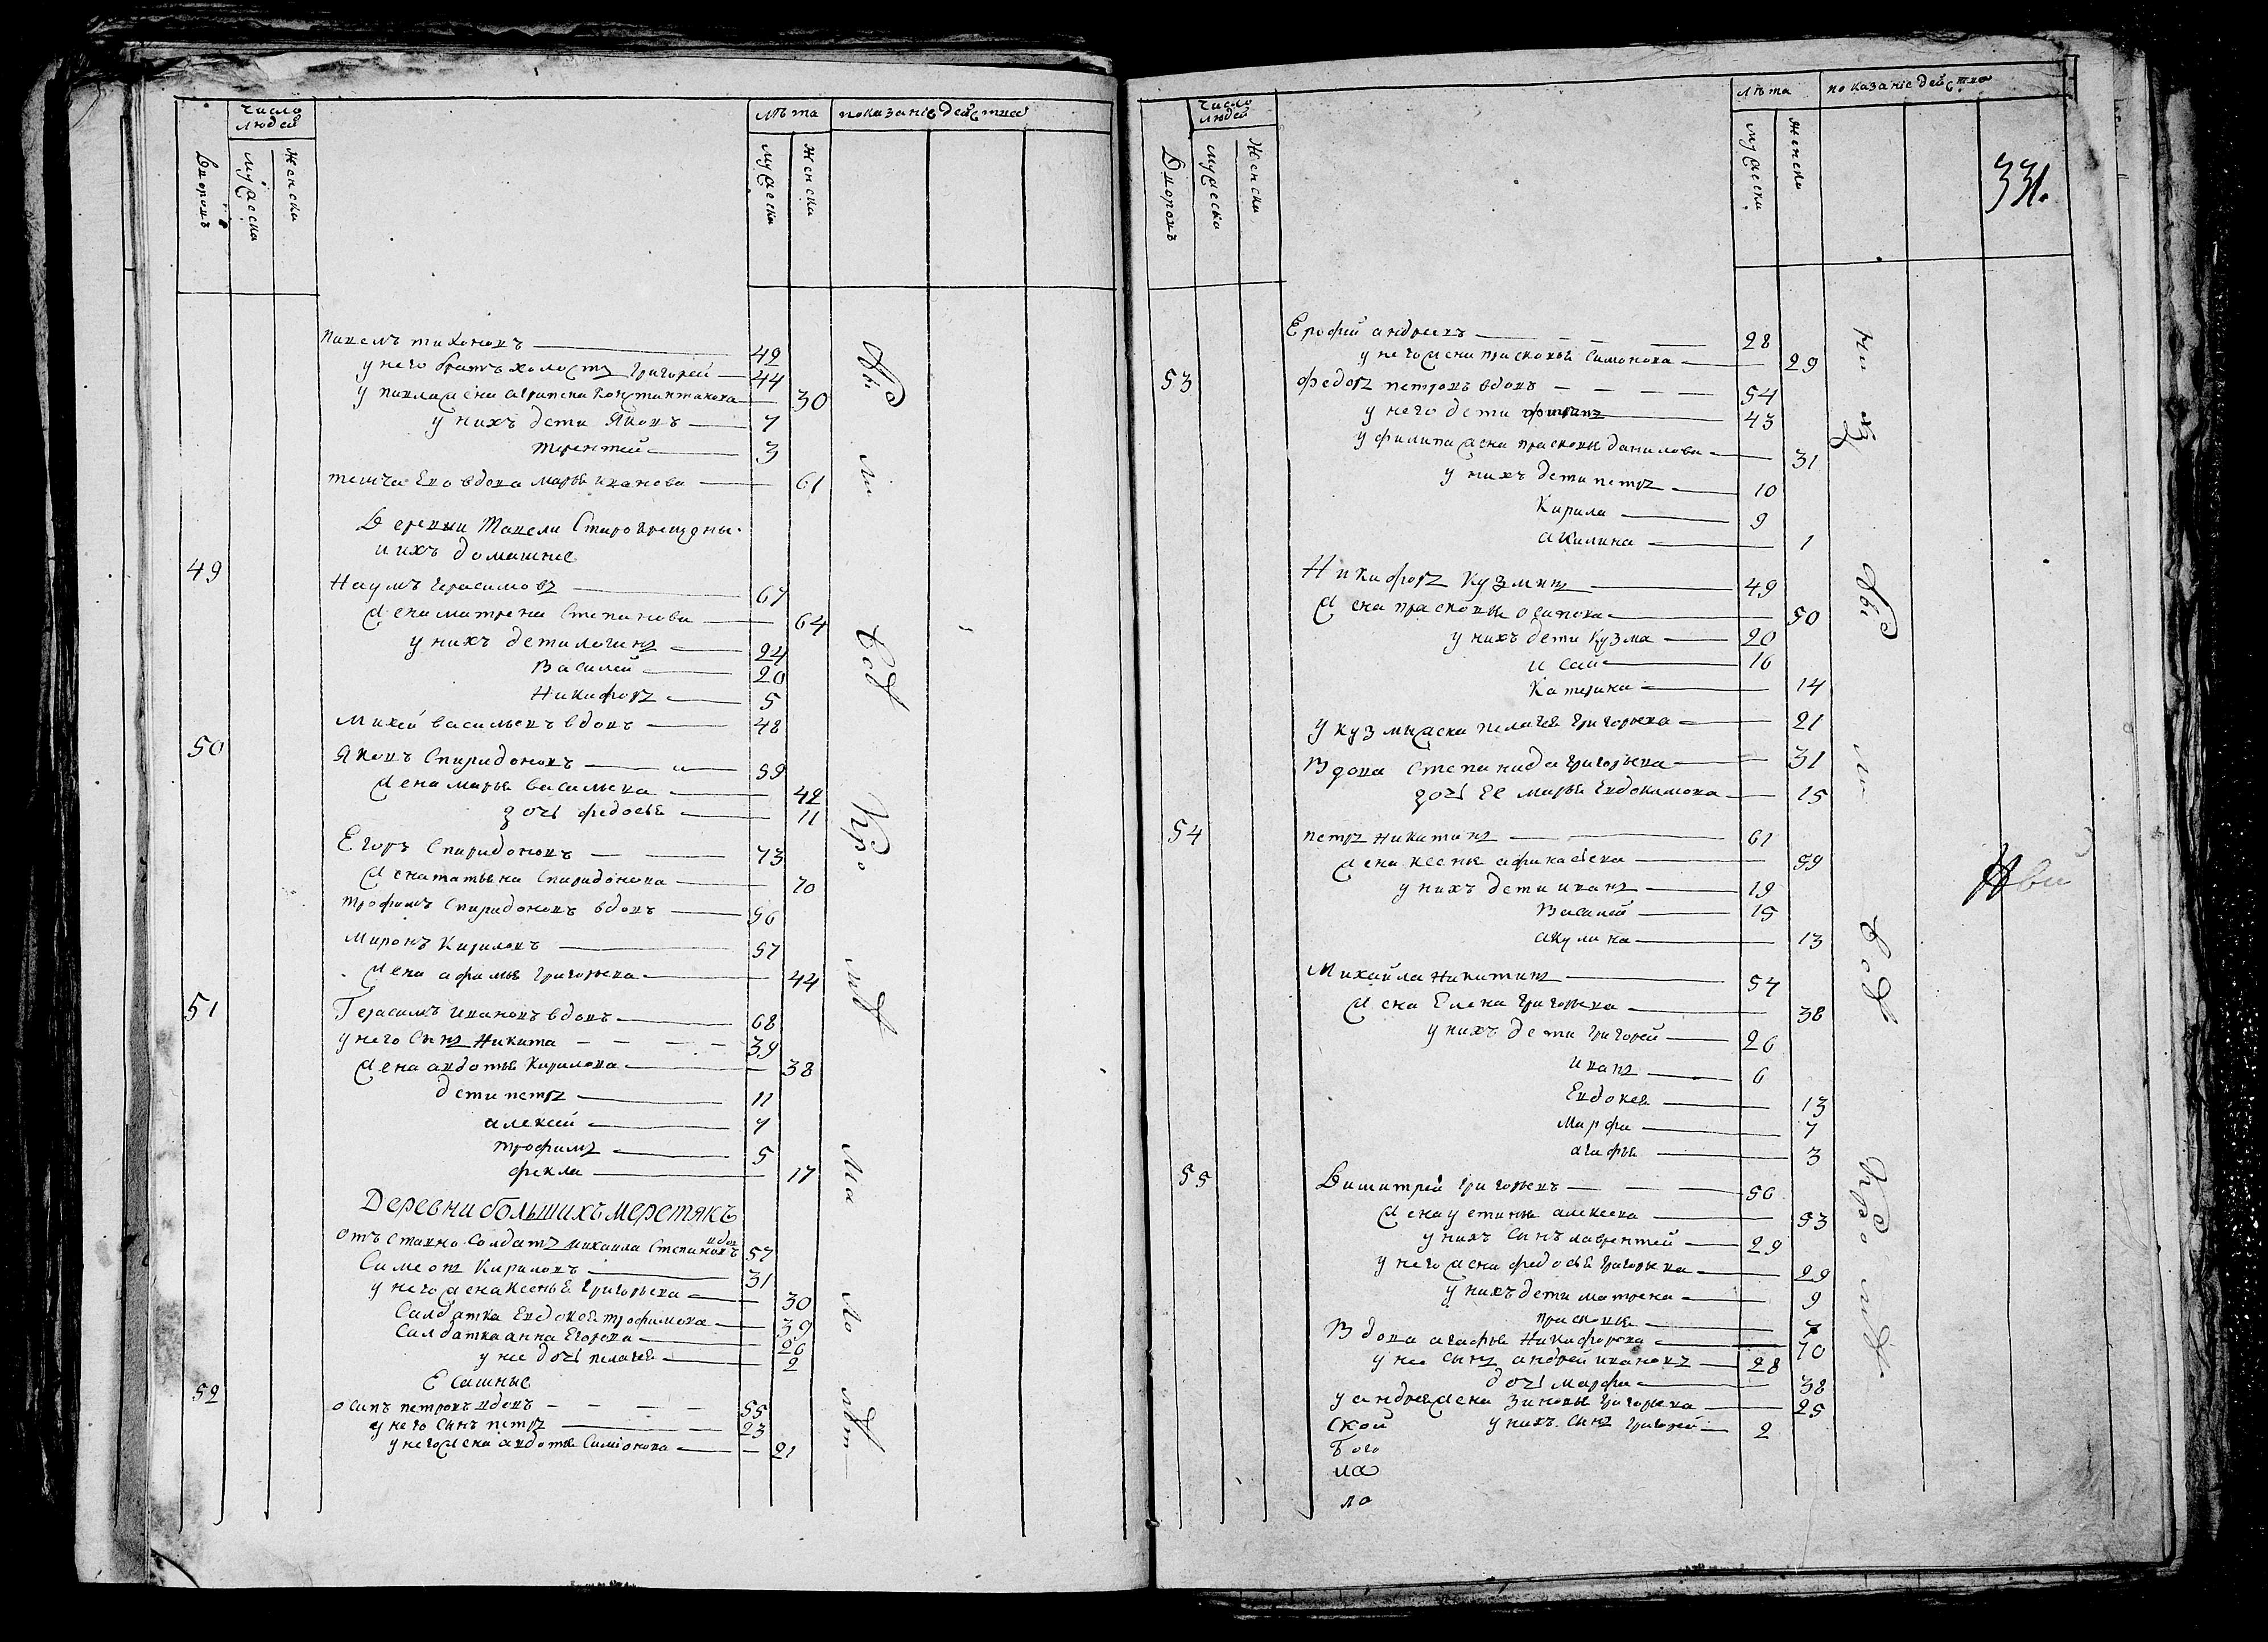 число людей
лѣта
показание действия
Дворовъ
мужеска
женска
мужеска
женска
павелъ тихоновъ 42
у него братъ холостъ григорей 44
у павла жена агрипена константинова 30
у нихъ дети яковъ 7
терентей 3
теща Ево вдова марья иванова 61
Деревни Старокрещены
и ихъ домашние
49
Наумъ герасимовъ 67
жена матрена степанова 64
у нихъ дети логинъ 24
Василей 20
Никифоръ 5
михей васильевъ вдовъ 48
50
Яковъ Спиридоновъ 59
жена марья васильева 42
дочь федосья 11
Егоръ Спиридоновъ 73
жена татьяна Спиридонова 70
трофимъ Спиридоновъ вдовъ 56
миронъ Кириловъ 57
жена афимья григорьева 44
51
Герасимъ ивановъ вдовъ 68
у него Сынъ Никита 39
жена авдотья Кирилова 38
дети петръ 11
алексей 7
трофимъ 5
фекла 17
Деревни большихъ меретякъ
отъ ставно Солдатъ михаила Степановъ вдов 57
Симеонъ Кириловъ 31
у него жена ксенья григорьева 30
Салдатка Евдокея трофимова 39
Салдатка анна Егорова 26
у нее дочь пелагея 2
Ясашные
52
осипъ петровъ вдовъ 55
у него Сынъ петръ 23
у него жена авдотья Симонова 21
Двѣ
ли
всѣ
Кро
мѣ
Ма
ло
лѣт
число людей
лѣта
показание действа
Дворовъ
мужеска
женска
мужеска
женска
331.
Ерофей андреевъ 28
у него жена прасковья Симонова 29
53
федоръ петровъ вдовъ 54
у него дети филипъ 43
у филипа жена прасковья данилова 31
у нихъ дети петръ 10
Кирила 9
акилина 1
Никифоръ Кузминъ 49
жена прасковья осипова 50
у нихъ дети Кузма 20
исай 16
Катерина 14
у кузмы жена пелагея григорьева 21
Вдова степанида григорьева 31
дочь Ее марья Евдокимова 15
54
петръ Никитинъ 61
жена ксенья афанасьева 59
у нихъ дети иванъ 19
Василей 15
акулина 13
Михайла Никитинъ 54
жена Елена григорьева 38
у нихъ дети григорей 26
иванъ 6
Евдокея 13
марфа 7
агафья 3
55
Димитрей григорьевъ 56
жена устинья алексеева 53
у нихъ Сынъ лаврентей 29
у него жена федосья григорьева 29
у нихъ дети матрена 9
прасковья 7
Вдова агафья Никифорова 70
у нее Сынъ андрей ивановъ 28
дочь марфа 38
у андрея жена зиновья григорьева 25
у нихъ Сынъ григорей 2
ской
Бого
ма
ло
Двѣ
ли
всѣ
Кро
мѣ